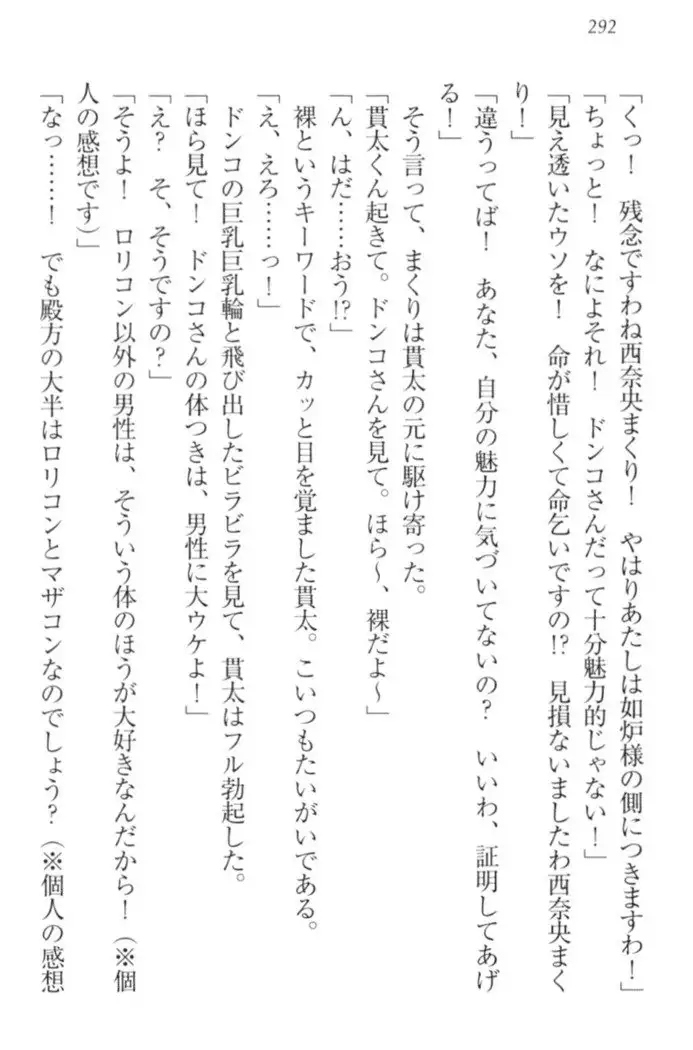 292
「くっ！　残念ですわね西奈央まくり！　やはりあたしは如炉様の側につきますわ！」
「ちょっと！　なによそれ！　ドンコさんだって十分魅力的じゃない！」
「見え透いたウソを！　命が惜しくて命乞いですの!?　見損ないましたわ西奈央まく
り！」
「違うってば！　あなた、自分の魅力に気づいてないの？　いいわ、証明してあげ
る！」
そう言って、まくりは貫太の元に駆け寄った。
「貫太くん起きて。ドンコさんを見て。ほら～、裸だよ～」
「ん、はだ……おう!?」
裸というキーワードで、カッと目を覚ました貫太。こいつもたいがいである。
「え、えろ……っ！」
ドンコの巨乳巨乳輪と飛び出したビラビラを見て、貫太はフル勃起した。
「ほら見て！　ドンコさんの体つきは、男性に大ウケよ！」
「え？　そ、そうですの？」
「そうよ！　ロリコン以外の男性は、そういう体のほうが大好きなんだから！（※個
人の感想です）」
「なっ……！　でも殿方の大半はロリコンとマザコンなのでしょう？（※個人の感想